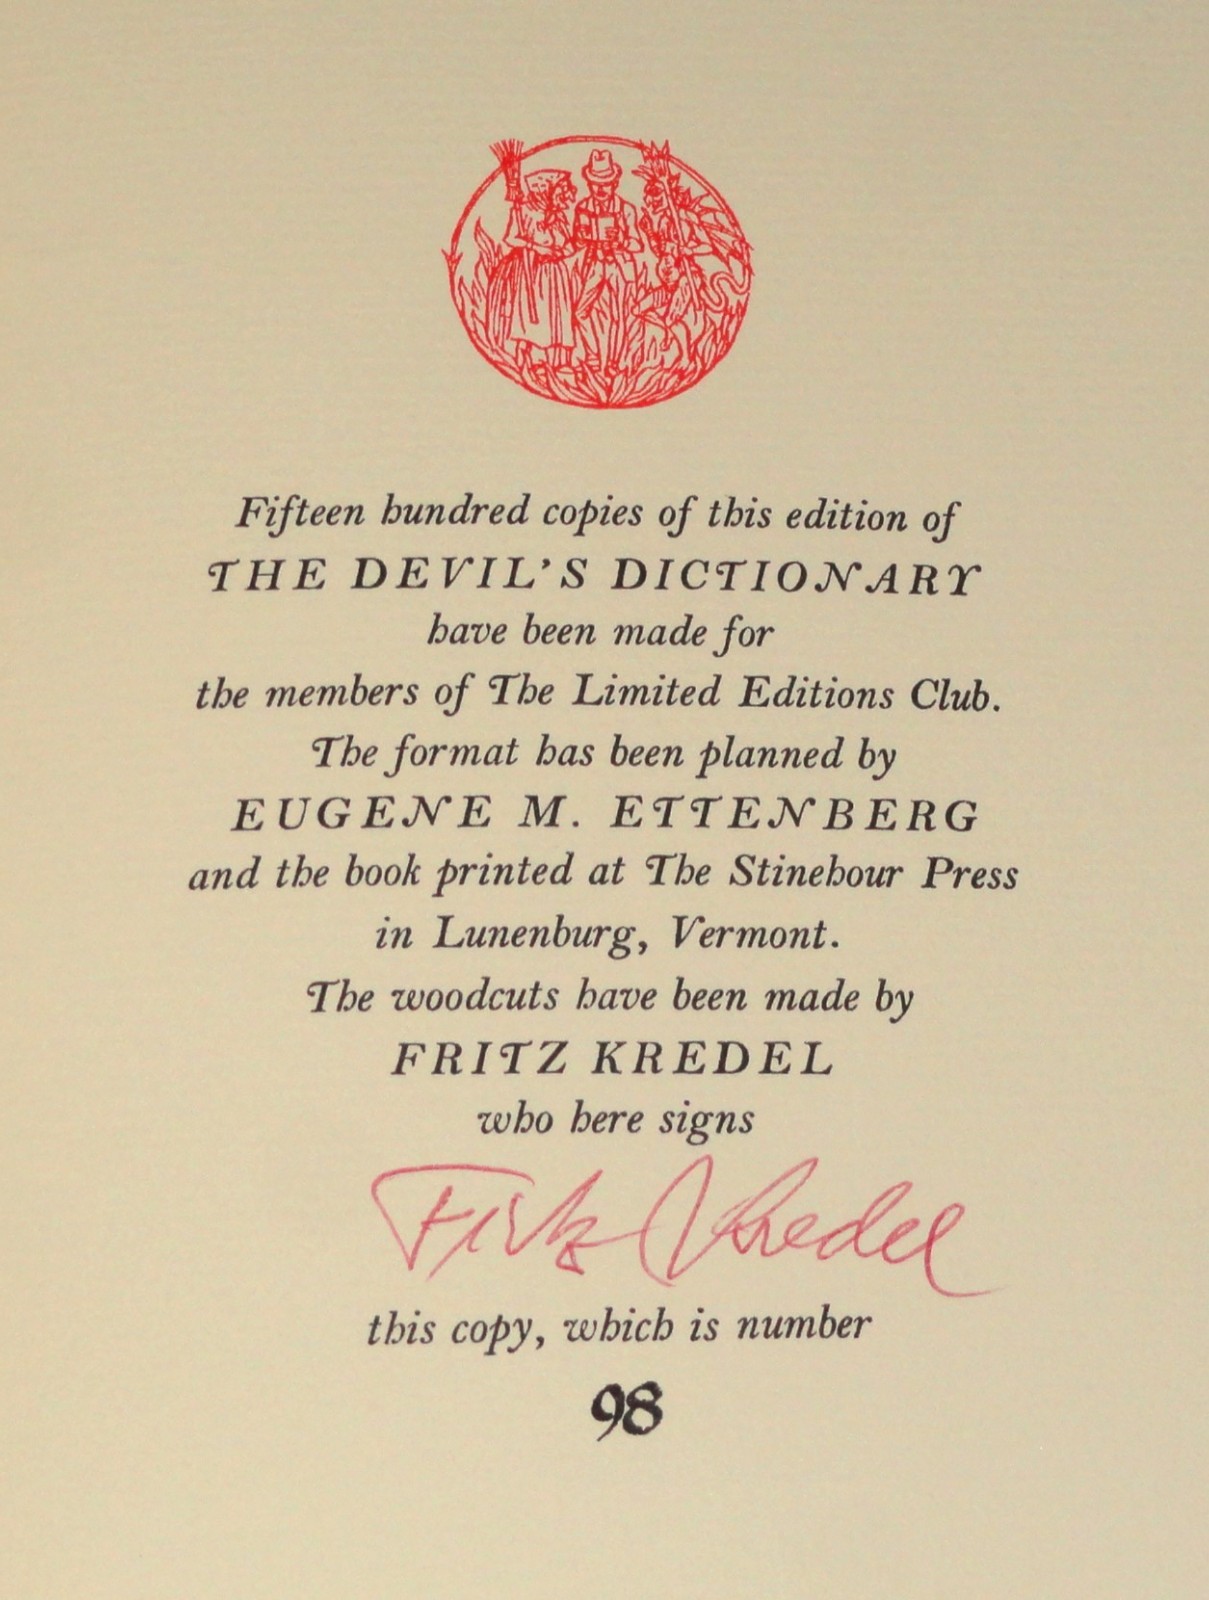 Fifteen hundred copies of this edition of
THE DEVIL'S DICTIONARY
have been made for
the members of The Limited Editions Club.
The format has been planned by
EUGENE M. ETTENBERG
and the book printed at The Stinehour Press
in Lunenburg, Vermont.
The woodcuts have been made by
FRITZ KREDEL
who here signs
Fritz Kredel
this copy, which is number
98